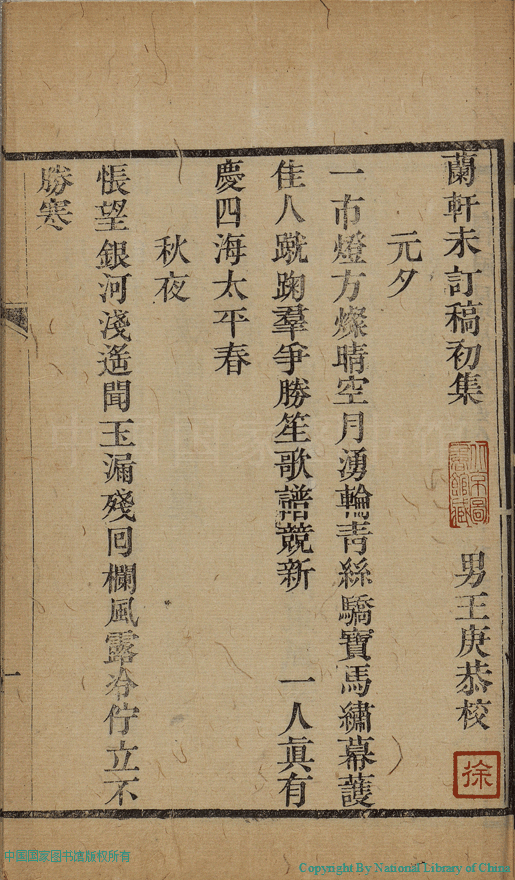 蘭軒未訂稿初集
男王庚恭校
元夕
一市燈方燦晴空月湧輪青絲驕寶馬繡幕護
佳人蹴踘羣爭勝笙歌譜競新　一人眞有
慶四海太平春
秋夜
悵望銀河淺遙聞玉漏殘囘欄風露冷佇立不
勝寒
一
徐
中国国家图书馆版权所有
Copyright By National Library of China